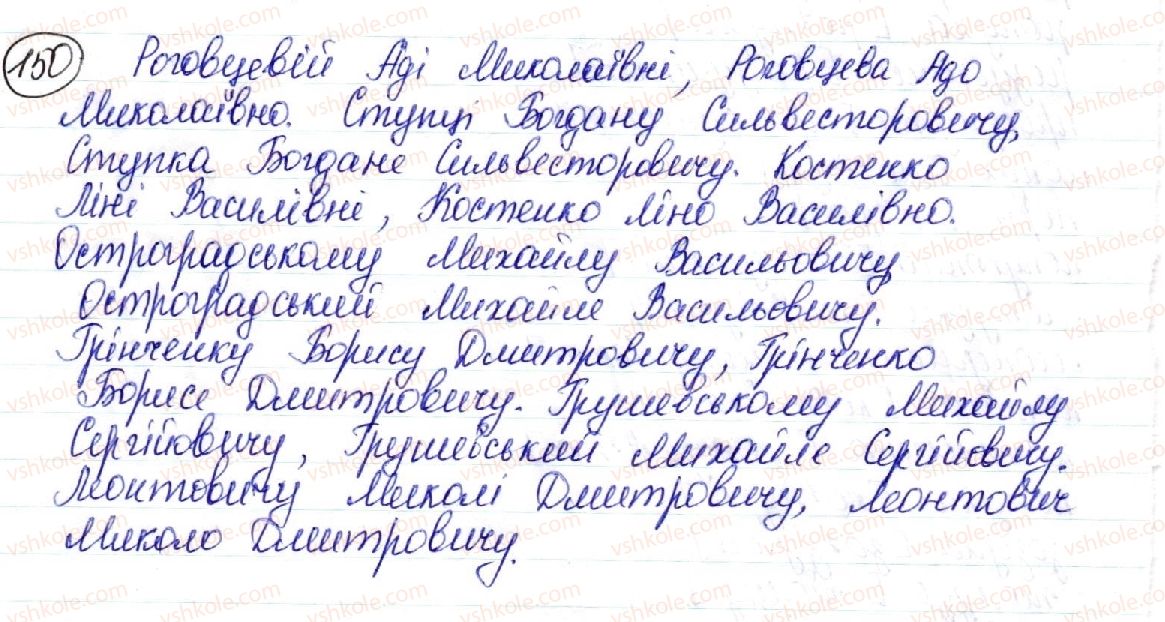 150 Роговцевій Аді Миколаївні, Роговцева Адо
Миколаївно. Ступці Богдану Сильвесторовичу,
Ступка Богдане Сильвесторовичу. Костенко
Ліні Василівні, Костенко Ліно Василівно.
Остроградському Михайлу Васильовичу
Остроградський Михайле Васильовичу.
Грінченку Борису Дмитровичу, Грінченко
Борисе Дмитровичу. Грушевському Михайлу
Сергійовичу, Грушевський Михайле Сергійовичу.
Леонтовичу Миколі Дмитровичу, Леонтович
Миколо Дмитровичу.